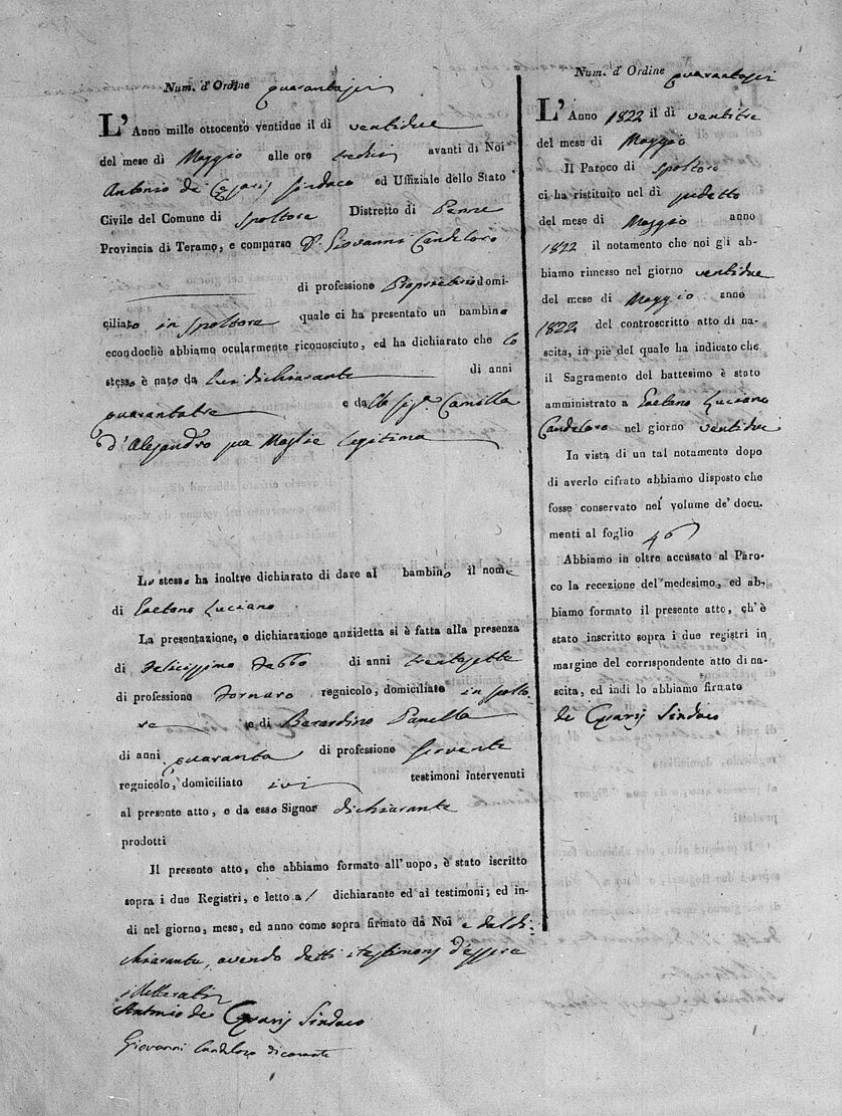 Num. d'Ordine quarantasei
L'Anno mille ottocento ventidue il dì ventidue
del mese di Maggio alle ore tredici avanti di Noi
Antonio de Cesaris Sindaco ed Uffiziale dello Stato
Civile del Comune di Spoltore Distretto di Penne
Provincia di Teramo, e comparso D. Giovanni Candeloro
di professione Proprietario domi-
ciliato in Spoltore quale ci ha presentato un bambino
secondochè abbiamo ocularmente riconosciuto, ed ha dichiarato che lo
stesso è nato da lui dichiarante di anni
quarantatre e dalla Sig.ra Camilla
d'Alejandro sua Moglie legitima
Lo stesso ha inoltre dichiarato di dare al bambino il nome
di Gaetano Luciano
La presentazione, e dichiarazione anzidetta si è fatta alla presenza
di Felicissimo Febbo di anni trentasette
di professione Fornaro regnicolo, domiciliato in Spolto
re e di Berardino Panella
di anni quaranta di professione servente
regnicolo, domiciliato ivi testimoni intervenuti
al presente atto, e da esso Signor dichiarante
prodotti
Il presente atto, che abbiamo formato all'uopo, è stato iscritto
sopra i due Registri, e letto al dichiarante ed ai testimoni; ed in-
di nel giorno, mese, ed anno come sopra firmato da Noi e dal di-
chiarante, avendo detti testimonj d'essere
illetterati
Antonio de Cesaris Sindaco
Giovanni Candeloro dicarante
Num. d'Ordine quarantasei
L'Anno 1822 il dì ventitre
del mese di Maggio
Il Paroco di Spoltore
ci ha ristituito nel dì sudetto
del mese di Maggio anno
1822 il notamento che noi gli ab-
biamo rimesso nel giorno ventidue
del mese di Maggio anno
1822 del controscritto atto di na-
scita, in piè del quale ha indicato che
il Sagramento del battesimo è stato
amministrato a Gaetano Luciano
Candeloro nel giorno ventidue
In vista di un tal notamento dopo
di averlo cifrato abbiamo disposto che
fosse conservato nel volume de' docu-
menti al foglio 46
Abbiamo in oltre accusato al Paro-
co la recezione del medesimo, ed ab-
biamo formato il presente atto, ch'è
stato inscritto sopra i due registri in
margine del corrispondente atto di na-
scita, ed indi lo abbiamo firmato
de Cesaris Sindaco